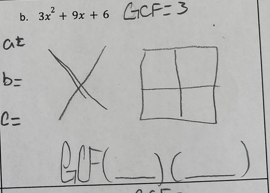 b. 3x² + 9x + 6 GCF=3
a=
b=
c=
GCF(___)(___)